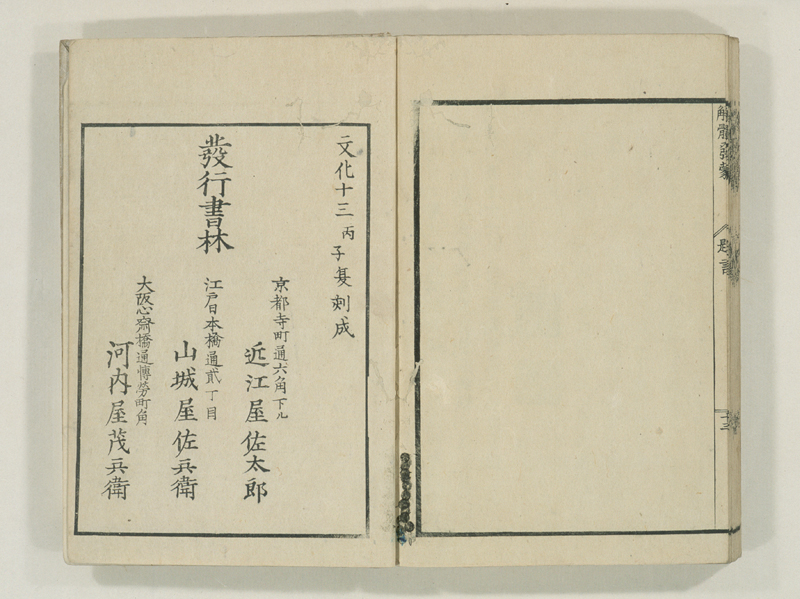 解體發蒙
文化十三丙子夏刻成
發行書林
京都寺町通六角下ル
近江屋佐太郎
江戸日本橋通貳丁目
山城屋佐兵衛
大阪心齋橋通博勞町角
河内屋茂兵衛